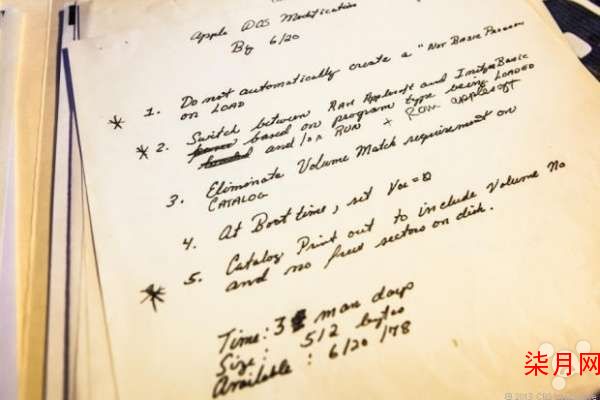 Apple DOS Modification
By 6/20
* 1. Do not automatically create a "Not Basic Program
on LOAD
* 2. Switch between RAM Applesoft and Integer Basic
based on program type being LOADED
and/or RUN + ROM Applesoft
3. Eliminate Volume Match requirement on
CATALOG
4. At Boot time, set Vol = 0
* 5. Catalog Print out to include Volume No
and no free sectors on disk.
Time: 3 man days
Size: 512 bytes
Available: 6/20/78
柒月网
© 2013 CBS